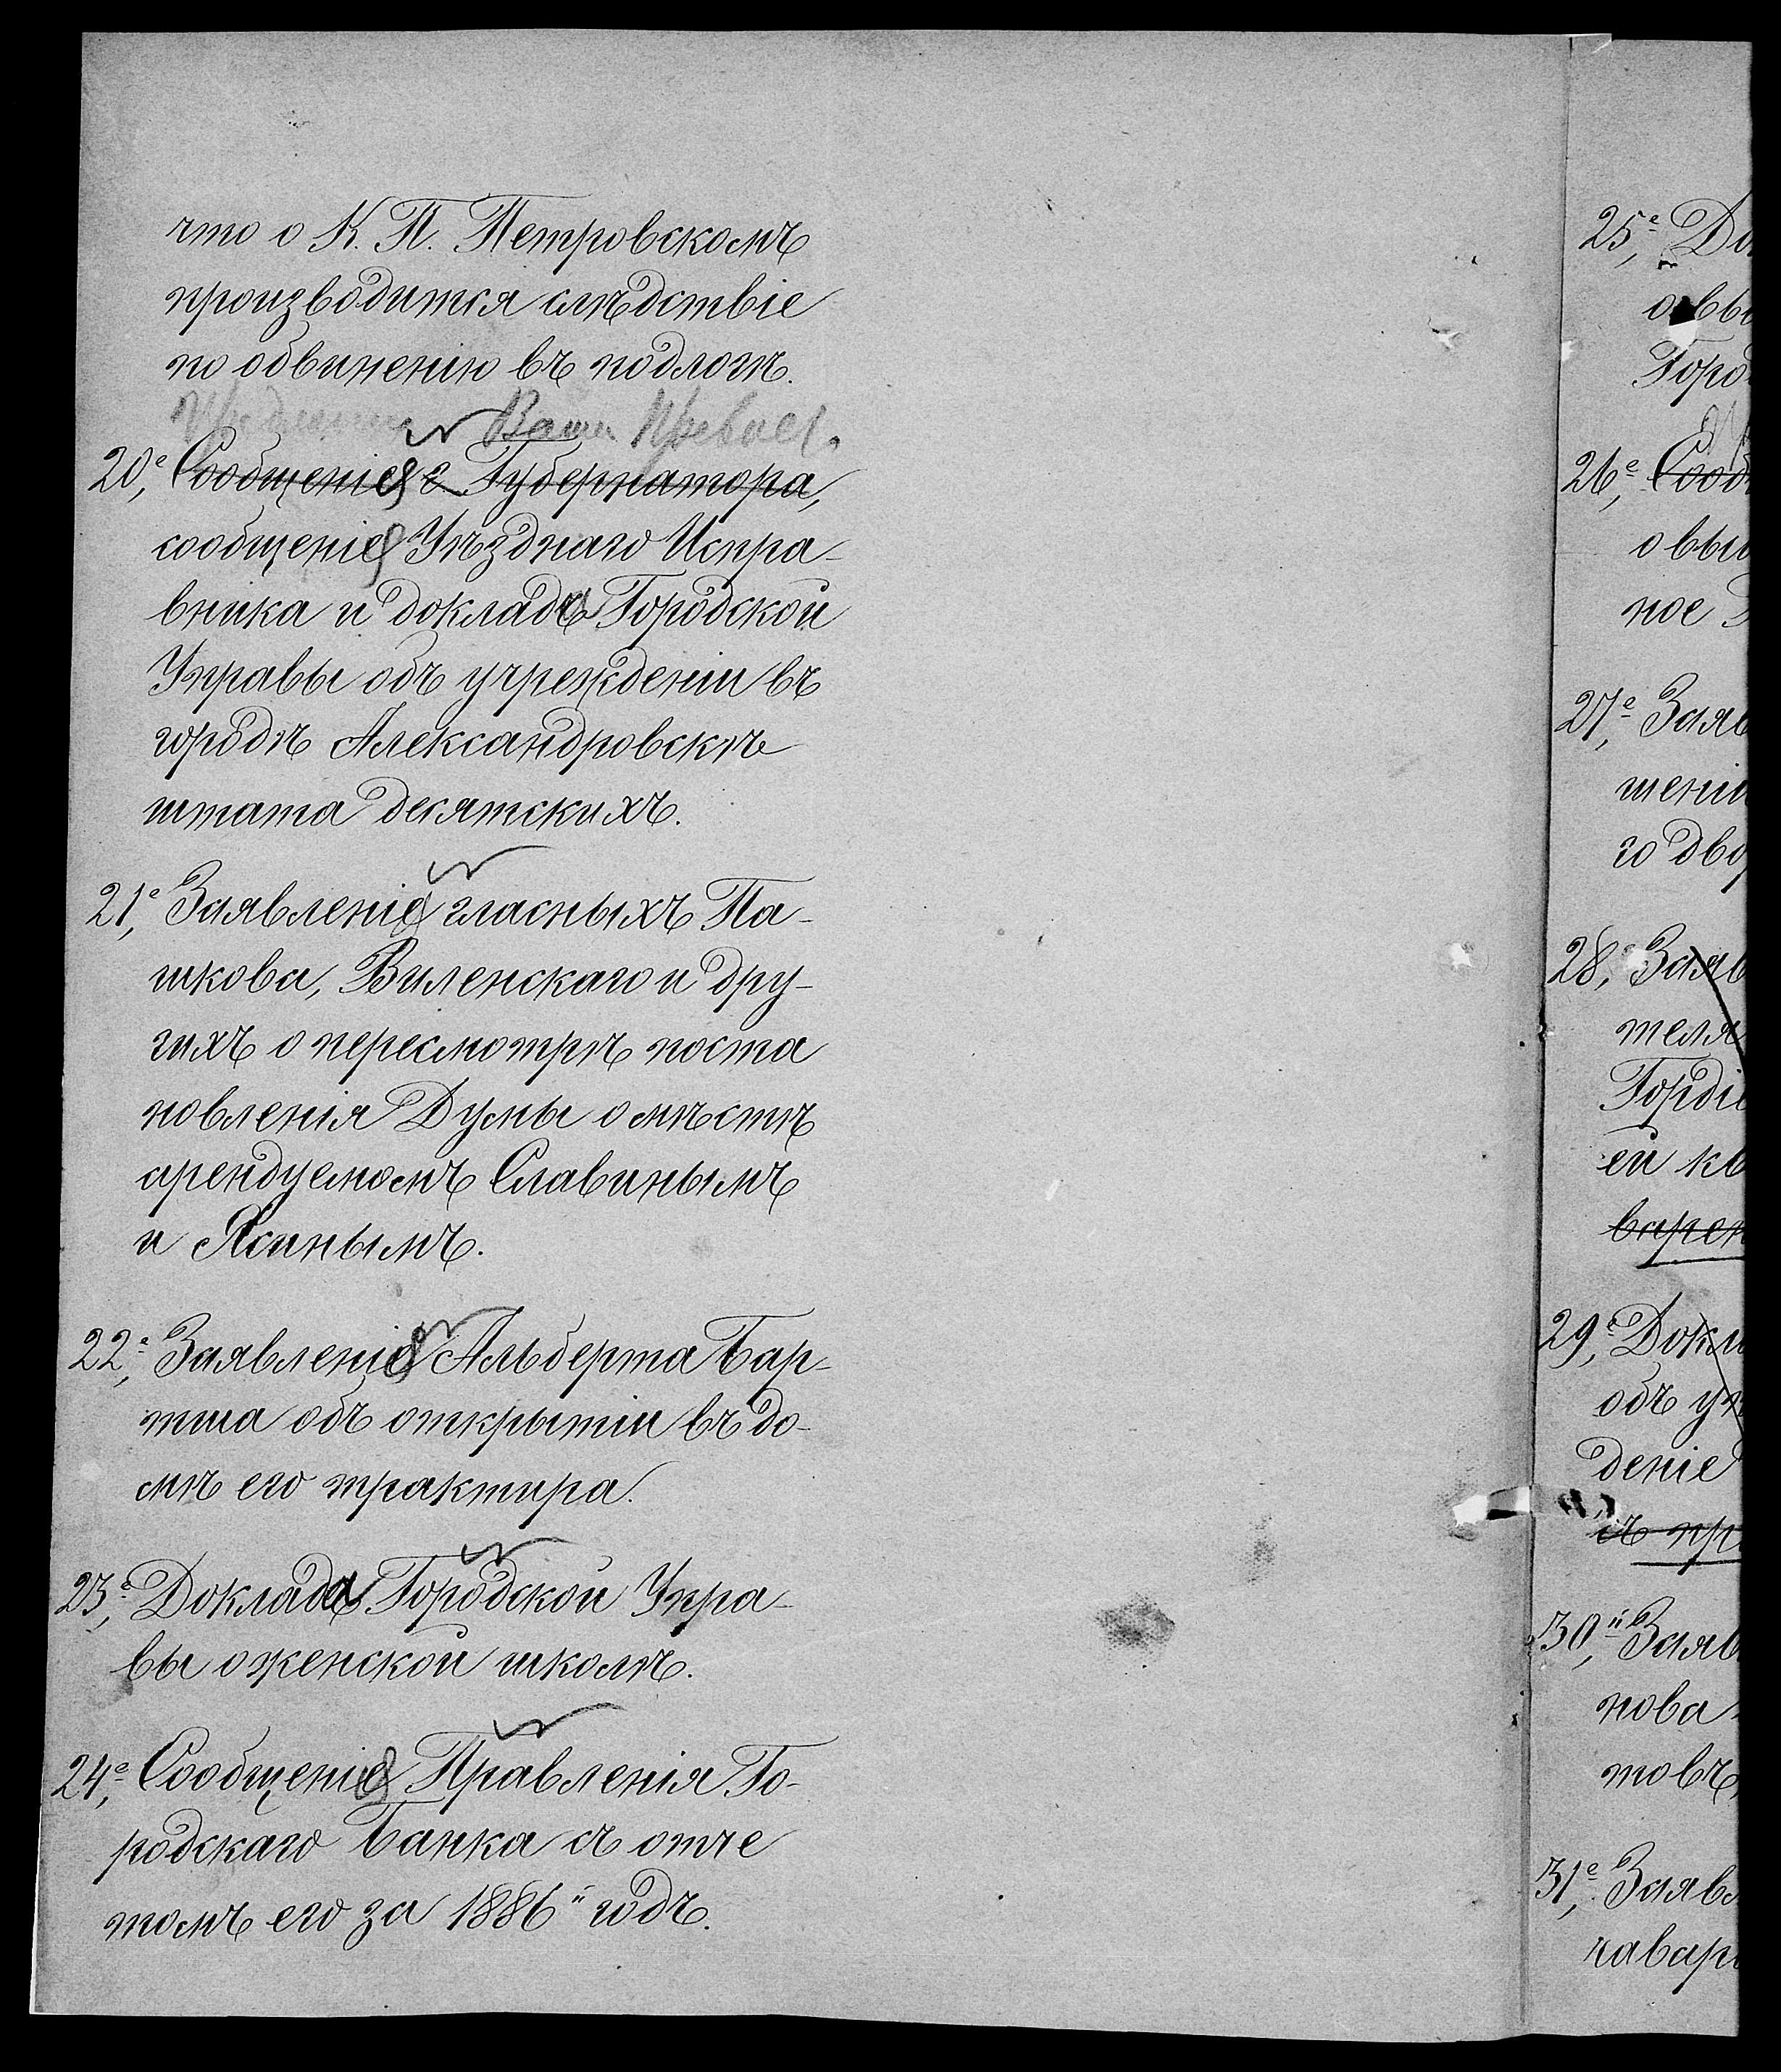 что о К. П. Петровскомъ
производится слѣдствіе
по обвиненію въ подлогѣ.
Ваше Превосх.
20,е Сообщеніе Губернатора,
сообщеніе Уѣзднаго Испра-
вника и докладъ Городской
Управы объ учрежденіи въ
городѣ Александровскѣ
штата десятскихъ.
21,е Заявленіе гласныхъ Па-
шкова, Виленскаго и дру-
гихъ о пересмотрѣ поста
новленія Думы о мѣстѣ
арендуемомъ Славинымъ
и Ясинымъ.
22,е Заявленіе Альберта Бар-
тша объ открытіи въ до-
мѣ его трактира.
23,е Доклада Городской Упра-
вы о женской школѣ.
24,е Сообщеніе Правленія Го-
родскаго Банка съ отче
томъ его за 1886й годъ.
25,е До
о вы
Город
26,е Сооб
о вы
ное
27,е Заяв
шенія
го дво
28, Заяв
теля
Гордіе
ей кв
варен
29,е Докл
объ уч
деніе
съ пр
30,й Заяв
нова
товъ
31,е Заявл
чавар